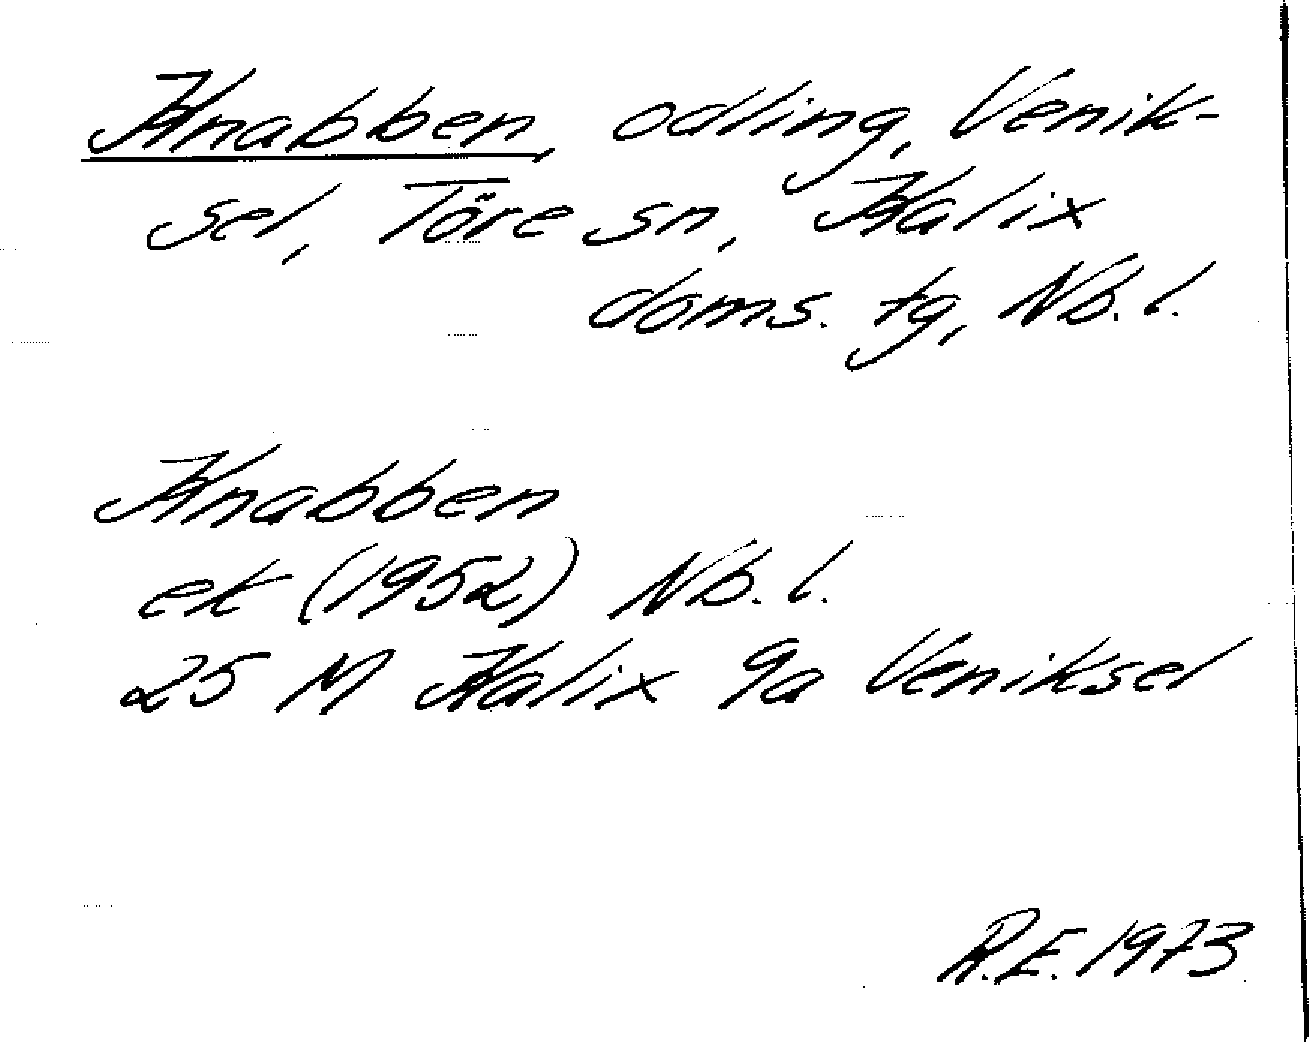 Knabben, odling, Venik-
sel, Töre sn, Kalix
doms. tg, Nb. l.
Knabben
ek (1952) Nb. l.
25 M Kalix 9a Veniksel
R.E. 1973